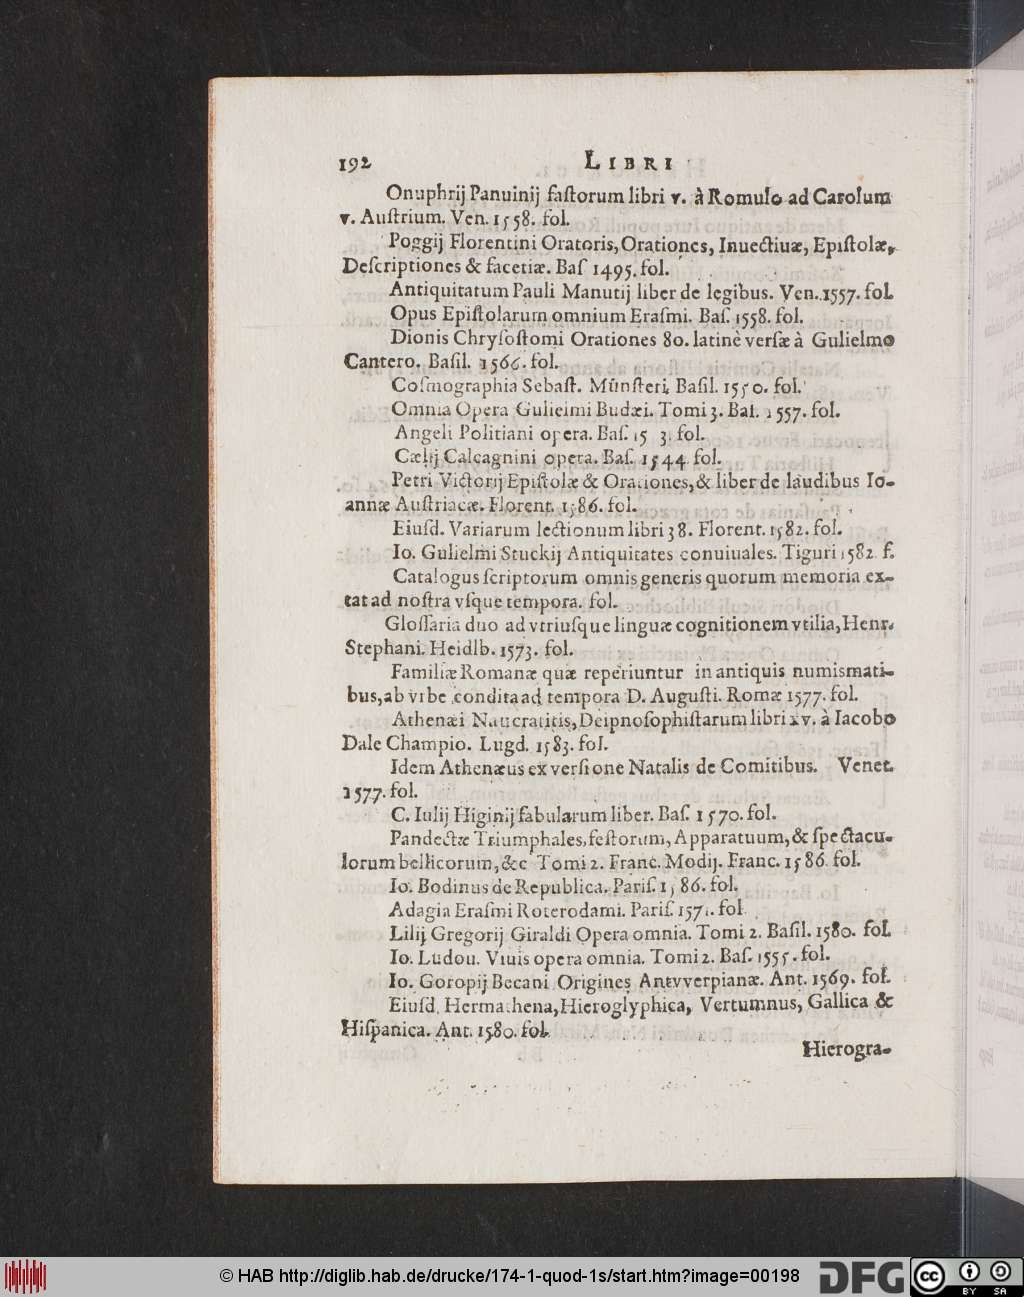 192 LIBRI
Onuphrij Panuinij faſtorum libri v. à Romulo ad Carolum
v. Auſtrium. Ven. 1558. fol.
Poggij Florentini Oratoris, Orationes, Inuectiuæ, Epiſtolæ,
Deſcriptiones & facetiæ. Baſ 1495. fol.
Antiquitatum Pauli Manutij liber de legibus. Ven. 1557. fol.
Opus Epiſtolarum omnium Eraſmi. Baſ. 1558. fol.
Dionis Chryſoſtomi Orationes 80. latinè verſæ à Gulielmo
Cantero. Baſil. 1566. fol.
Coſmographia Sebaſt. Münſteri. Baſil. 1550. fol.
Omnia Opera Gulielmi Budæi. Tomi 3. Baſ. 1557. fol.
Angeli Politiani opera. Baſ. fol.
Cælij Calcagnini opera. Baſ. 1544. fol.
Petri Victorij Epiſtolæ & Orationes, & liber de laudibus Io-
annæ Auſtriacæ. Florent. 1586. fol.
Eiuſd. Variarum lectionum libri 38. Florent. 1582. fol.
Io. Gulielmi Stuckij Antiquitates conuiuales. Tiguri 1582. f.
Catalogus ſcriptorum omnis generis quorum memoria ex-
tat ad noſtra vſque tempora. fol.
Gloſſaria duo ad vtriuſque linguæ cognitionem vtilia, Henr.
Stephani. Heidlb. 1573. fol.
Familiæ Romanæ quæ reperiuntur in antiquis numismati-
bus, ab vrbe condita ad tempora D. Auguſti. Romæ 1577. fol.
Athenæi Naucratitis, Deipnoſophiſtarum libri xv. à Iacobo
Dale Champio. Lugd. 1583. fol.
Idem Athenæus ex verſione Natalis de Comitibus. Venet.
1577. fol.
C. Iulij Higinij fabularum liber. Baſ. 1570. fol.
Pandectæ Triumphales, feſtorum, Apparatuum, & ſpectacu-
lorum bellicorum, &c Tomi 2. Franc. Modij. Franc. 1586. fol.
Io. Bodinus de Republica. Pariſ. 1586. fol.
Adagia Eraſmi Roterodami. Pariſ. fol.
Lilij Gregorij Giraldi Opera omnia. Tomi 2. Baſil. 1580. fol.
Io. Ludou. Viuis opera omnia. Tomi 2. Baſ. 1555. fol.
Io. Goropij Becani Origines Antvverpianæ. Ant. 1569. fol.
Eiuſd. Hermathena, Hieroglyphica, Vertumnus, Gallica &
Hiſpanica. Ant. 1580. fol.
Hierogra-
© HAB http://diglib.hab.de/drucke/174-1-quod-1s/start.htm?image=00198 DFG cc BY SA